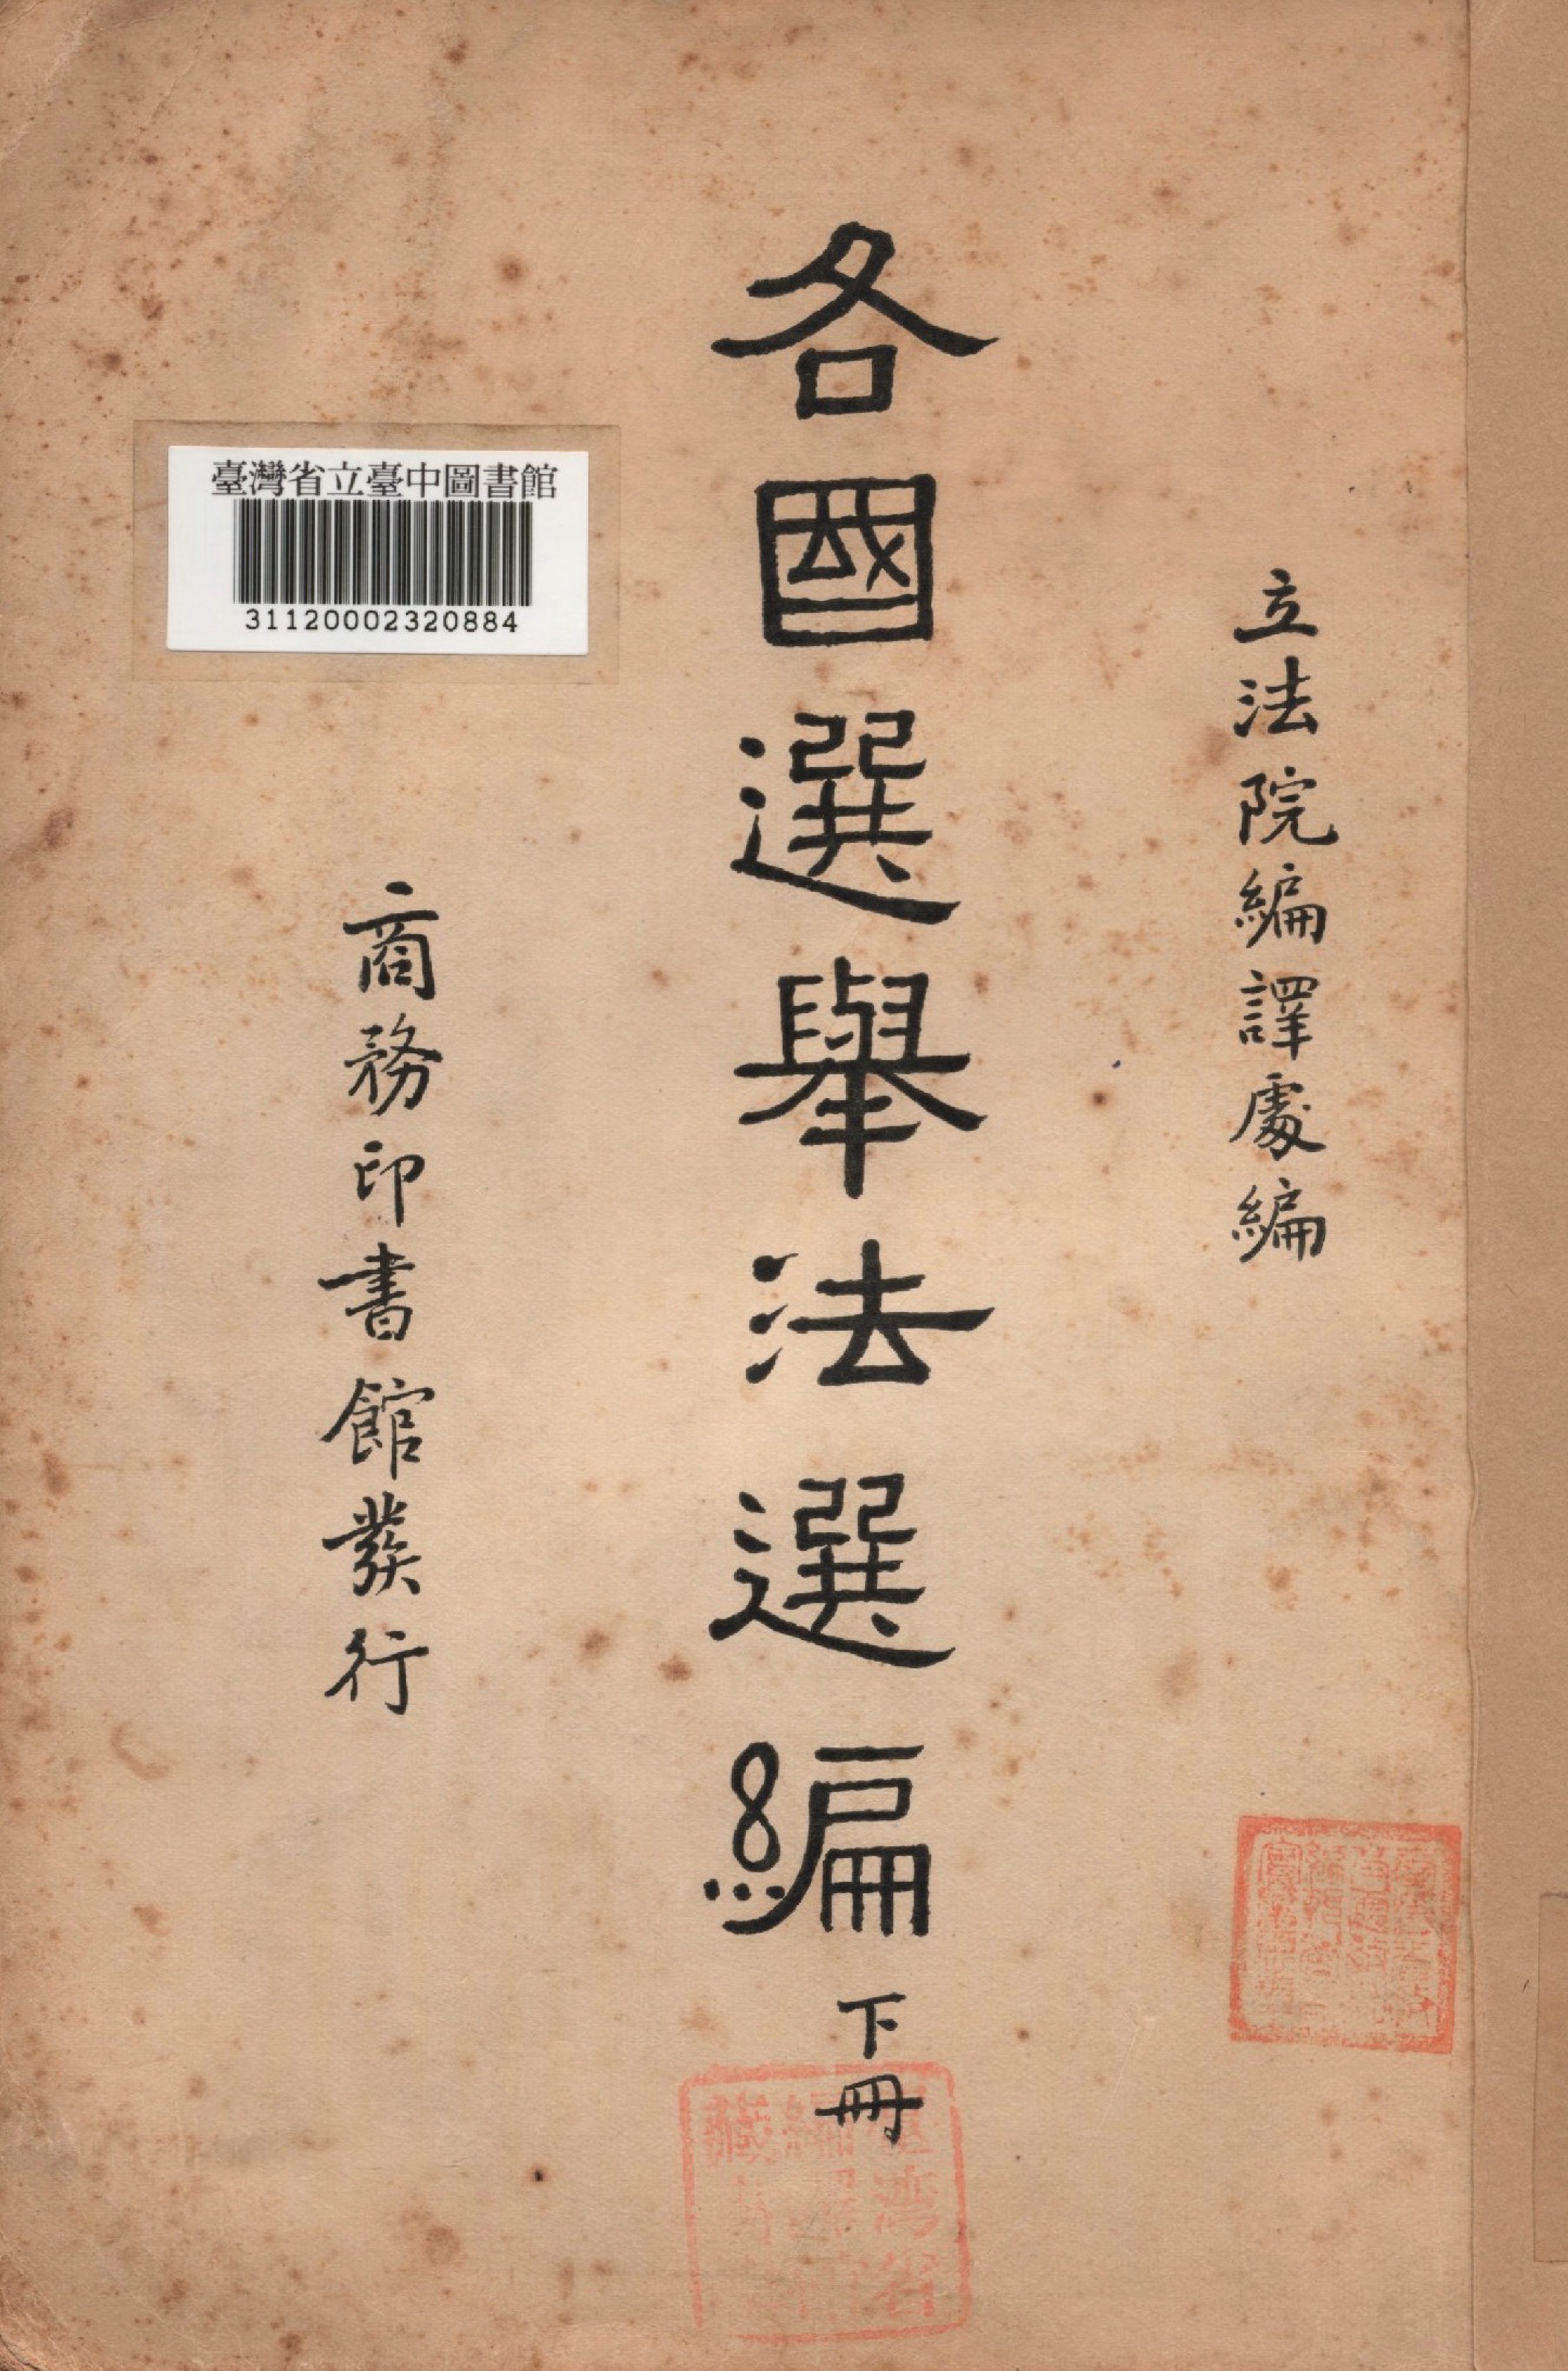 立法院編譯處編
各國選舉法選編
下冊
商務印書館發行
臺灣省立臺中圖書館
31120002320884